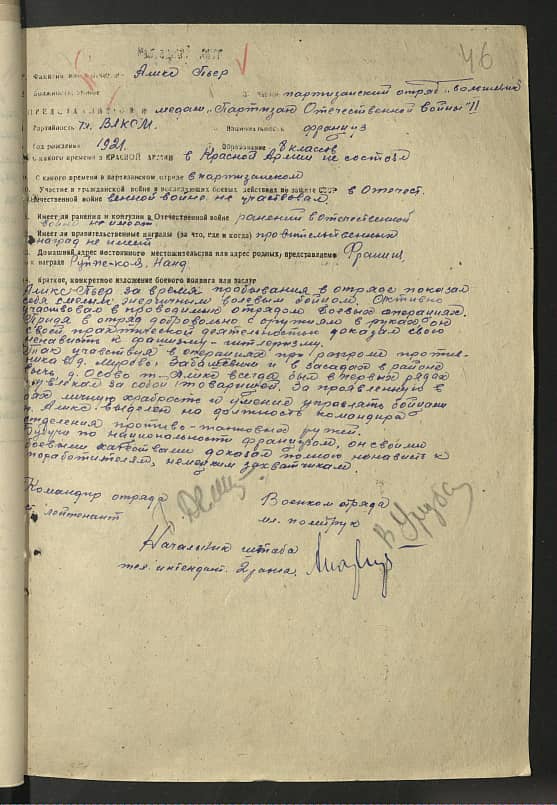 НАГРАДНОЙ ЛИСТ
46
Фамилия имя отчество Алмкс Пьер
Должность, звание часть партизанский отряд „Большевик"
ПРЕДСТАВЛЯЕТСЯ К медали „Партизану Отечественной войны" II
Партийность чл. ВЛКСМ. Национальность француз
Год рождения 1921. Образование 8 классов
С какого времени в КРАСНОЙ АРМИИ в Красной Армии не состоял
С какого времени в партизанском отряде в партизанском
Участие в гражданской войне и последующих боевых действиях по защите СССР в Отечест.
Отечественной войне венной войне не участвовал.
Имеет ли ранения и контузии в Отечественной войне ранений в отечественной
войне не имеет
Имеет ли правительственные награды (за что, где и когда) правительственных
наград не имеет
Домашний адрес постоянного местожительства или адрес родных, представляемого Франция,
к награде
Краткое, конкретное изложение боевого подвига или заслуг
Алмкс Пьер за время пребывания в отряде показал
себя смелым энергичным волевым бойцом. Активно
участвовал в проводимых отрядом боевых операциях.
Придя в отряд добровольно с оружием в руках он
своей практической деятельностью доказал свою
ненависть к фашизму-гитлеризму.
Так участвуя в операциях при разгроме против-
ника в д. и в засадах в районе
д. Осово т. Алмкс всегда был в первых рядах
увлекая за собой товарищей. За проявленную в
боях личную храбрость и умение управлять бойцами
т. Алмкс выделен на должность командира
отделения противо-танковых ружей.
Будучи по национальности французом, он своими
боевыми качествами доказал полную ненависть к
поработителям, немецким захватчикам.
Командир отряда Военком отряда
ст. лейтенант мл. политрук
Начальник штаба
тех. интендант 2 ранга